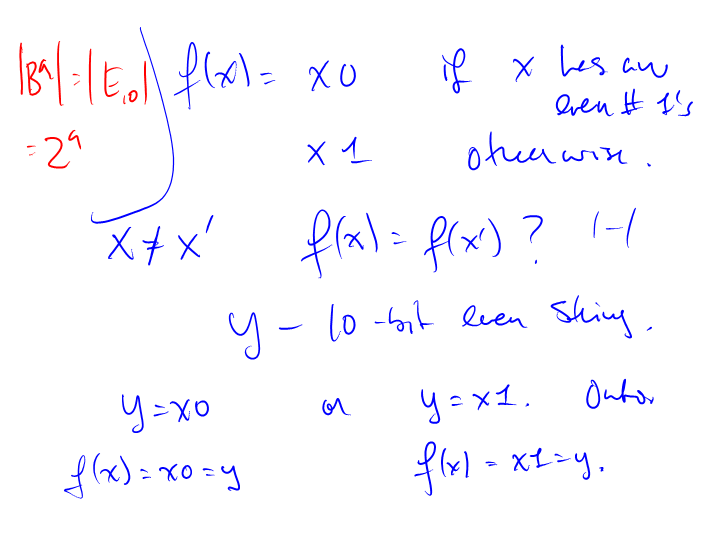 |B⁹| = |E₁₀|
= 2⁹
f(x) = x0 if x has an
even # 1's
x1 otherwise.
x ≠ x' f(x) = f(x') ? 1-1
y – 10-bit even string.
y = x0 or y = x1. Onto
f(x) = x0 = y f(x) = x1 = y.